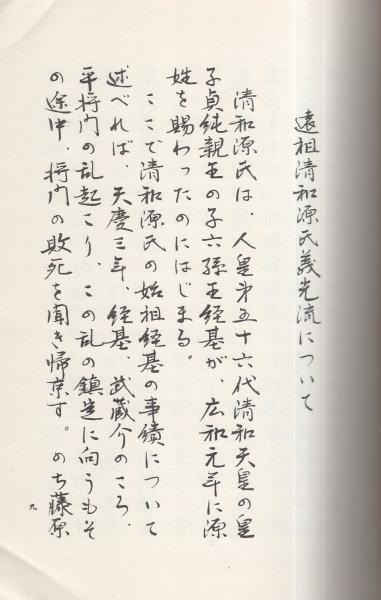 遠祖清和源氏義光流について
清和源氏は、人皇第五十六代清和天皇の皇
子貞純親王の子六孫王経基が、広和元年に源
姓を賜わったのにはじまる。
ここで清和源氏の始祖経基の事績について
述べれば、天慶三年、経基、武蔵介のころ、
平将門の乱起こり、この乱の鎮定に向うもそ
の途中、将門の敗死を聞き帰京す。のち藤原
九